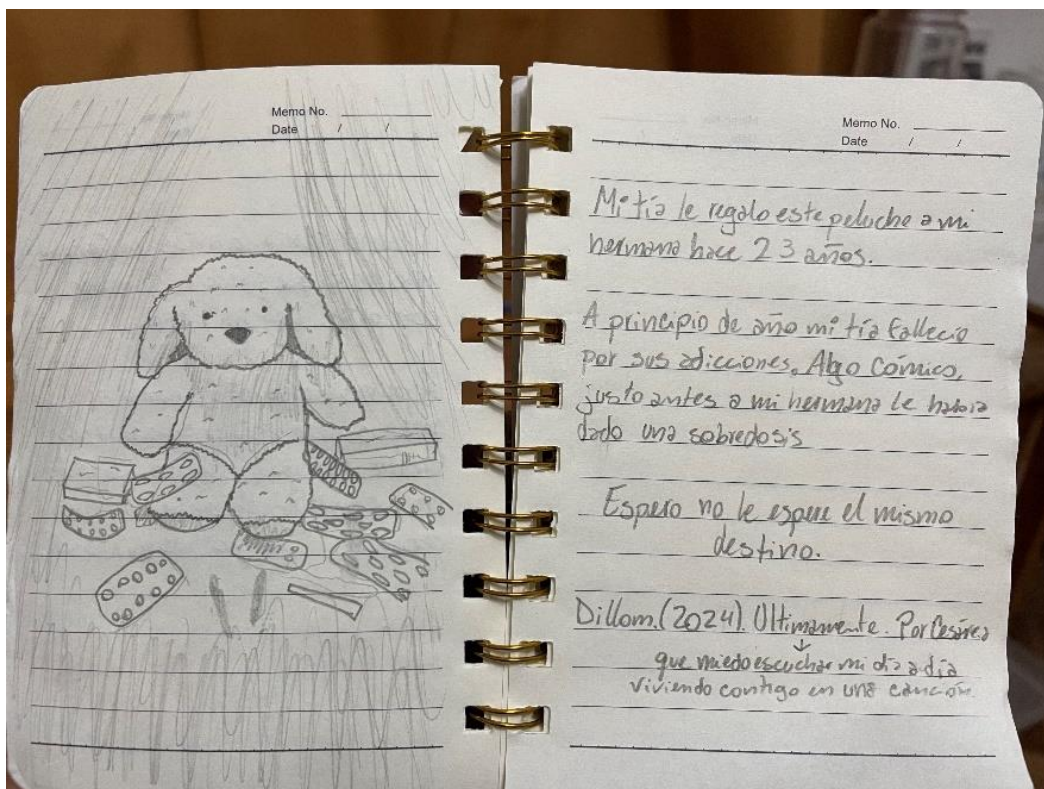 Memo No.
Date / /
Memo No.
Date / /
Mi tía le regalo este peluche a mi
hermana hace 23 años.
A principio de año mi tía fallecio
por sus adicciones. Algo Cómico,
justo antes a mi hermana le habia
dado una sobredosis
Espero no le espere el mismo
destino.
Dillom. (2024). Ultimamente. Por Cesárea
↓
que miedo escuchar mi día a día
viviendo contigo en una canción